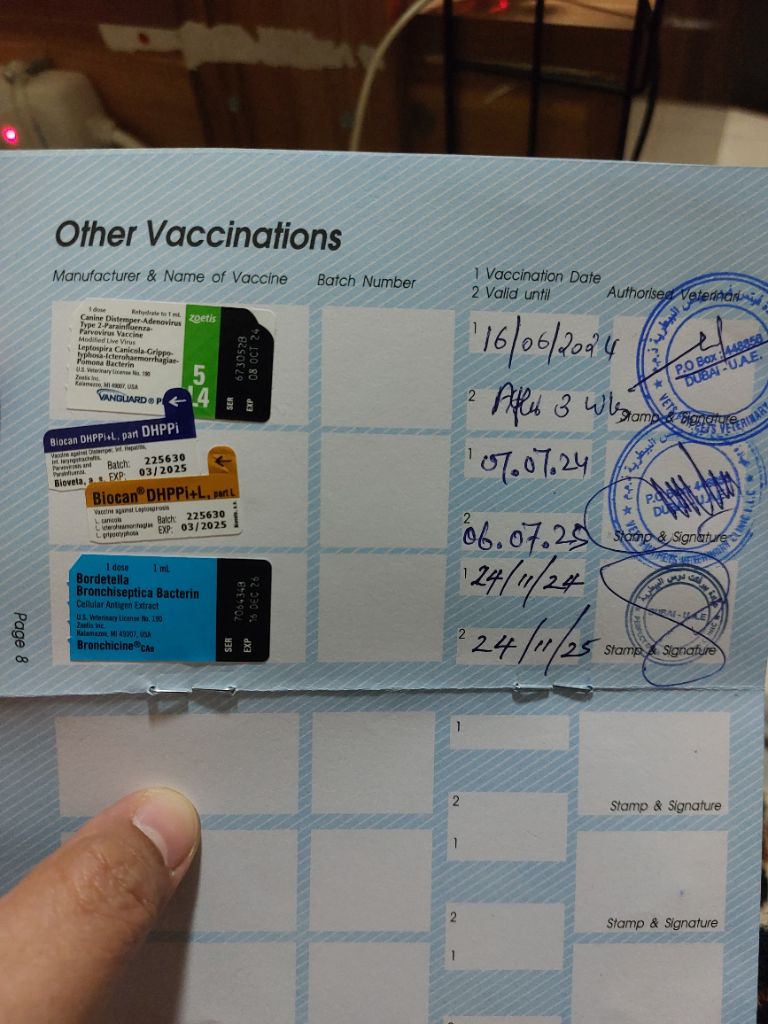 Other Vaccinations
Manufacturer & Name of Vaccine
Batch Number
1 Vaccination Date
2 Valid until
Authorised Veterinari
1 dose Rehydrate to 1 mL
Canine Distemper-Adenovirus
Type 2-Parainfluenza-
Parvovirus Vaccine
Modified Live Virus
Leptospira Canicola-Grippo-
typhosa-Icterohaemorrhagiae-
Pomona Bacterin
U.S. Veterinary License No. 190
Zoetis Inc.
Kalamazoo, MI 49007, USA
VANGUARD® P
zoetis
5
L4
SER 673052B
EXP 08 OCT 24
1 16/06/2024
2 After 3 wks
P.O Box : 448856
DUBAI - U.A.E.
Stamp & Signature
Biocan DHPPi+L, part DHPPi
Vaccine against Distemper, Inf. Hepatitis,
Inf. laryngotracheitis,
Parvovirosis and
Parainfluenza.
Batch: 225630
EXP: 03/2025
Bioveta, a. s.
Biocan® DHPPi+L, part L
Vaccine against Leptospirosis
L. canicola
L. icterohaemorrhagiae
L. grippotyphosa
Batch: 225630
EXP: 03/2025
1 07.07.24
2 06.07.25
Stamp & Signature
1 dose 1 mL
Bordetella
Bronchiseptica Bacterin
Cellular Antigen Extract
U.S. Veterinary License No. 190
Zoetis Inc.
Kalamazoo, MI 49007, USA
Bronchicine® CAe
SER 706434B
EXP 16 DEC 26
1 24/11/24
2 24/11/25
DUBAI - U.A.E
Stamp & Signature
Page 8
1
2
Stamp & Signature
1
2
Stamp & Signature
1